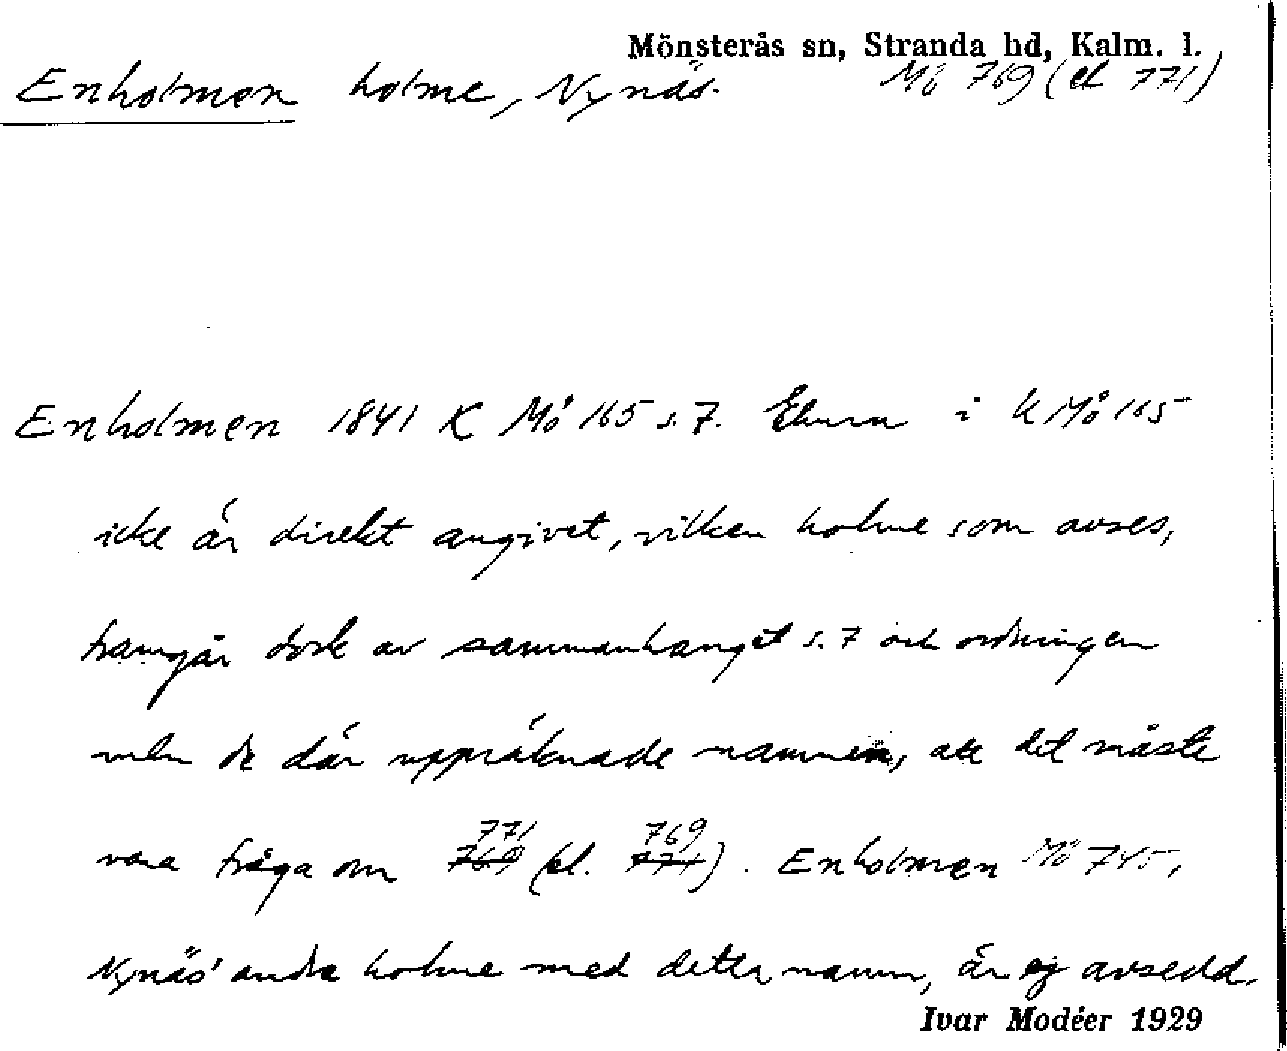 Mönsterås sn, Stranda hd, Kalm. l.
Enholmen holme, Nynäs. Mö 769 (el 771)
Enholmen 1841 K Mö 165 s. 7. Ehuru i K Mö 165
icke är direkt angivet, vilken holme som avses,
framgår dock av sammanhanget s. 7 och ordningen
mellan de där uppräknade namnen, att det måste
771 769
vara fråga om 769 (el. 771). Enholmen Mö 745,
Nynäs' andra holme med detta namn, är ej avsedd.
Ivar Modéer 1929